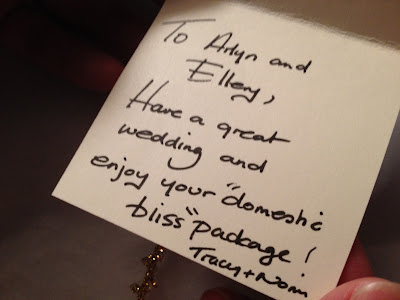 To Arlyn and
Ellery,
Have a great
wedding and
enjoy your "domestic
bliss" package!
Tracy + Norm